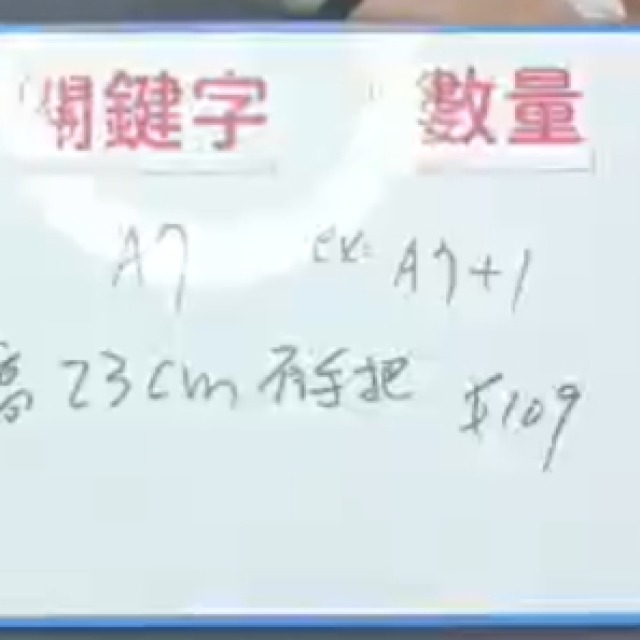 關鍵字 數量
A7 ex: A7+1
高 23cm 有手把 $109